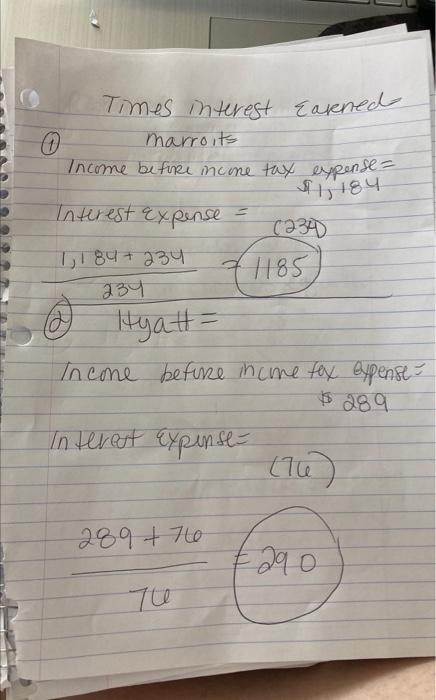 Times interest Earened
① marroits
Income before income tax expense =
$1,184
Interest Expense =
(234)
1,184 + 234
= 1185
234
② Hyatt =
Income before income tax expense =
$ 289
Interest Expense =
(76)
289 + 76
= 290
76